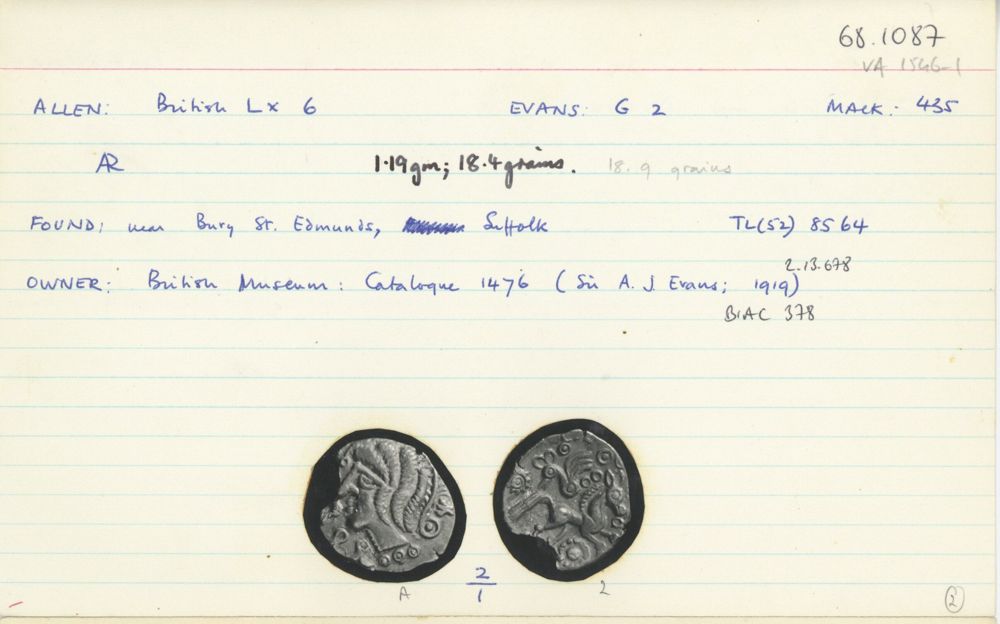 68.1087
VA 1546-1
ALLEN: British Lx 6 EVANS: G 2 MACK: 435
AR 1.19gm; 18.4 grains. 18.9 grains
FOUND: near Bury St. Edmunds, Suffolk TL(52) 8564
2.13.678
OWNER: British Museum: Catalogue 1476 (Sir A. J. Evans; 1919)
BIAC 378
A 2/1 2
2